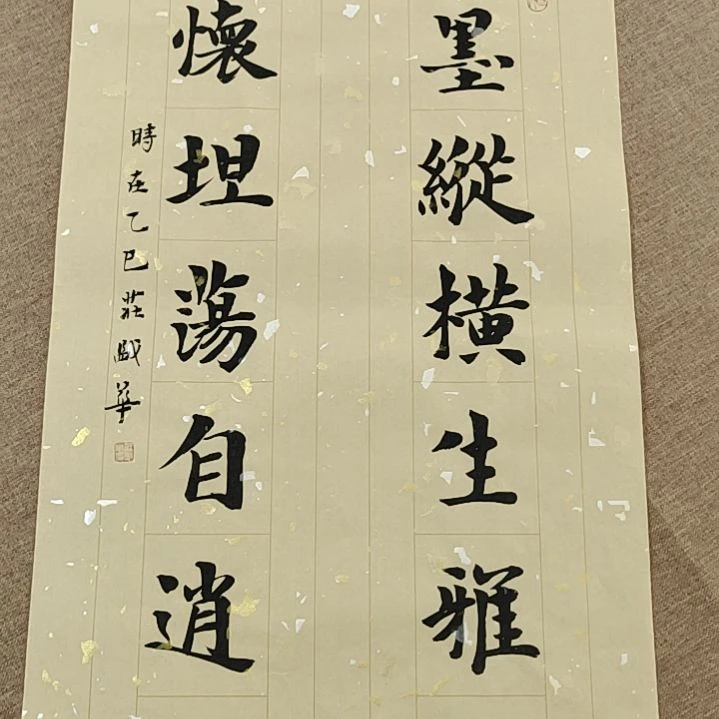 墨縱橫生雅
懷坦蕩自逍
時在乙巳莊
華